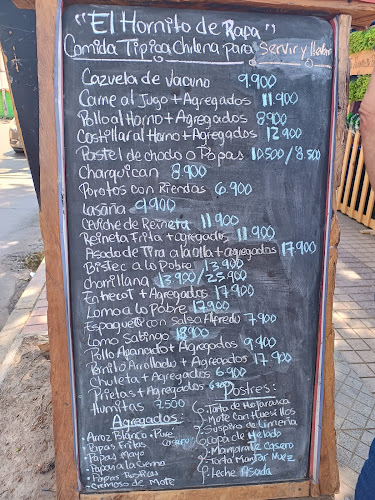 "El Hornito de Rapa"
Comida Tipica Chilena para Servir y llevar
Cazuela de Vacuno 9.900
Carne al Jugo + Agregados 11.900
Pollo al Horno + Agregados 8.900
Costillar al Horno + Agregados 12.900
Pastel de choclo o Papas 10.500/8.500
Charquican 8.900
Porotos con Riendas 6.900
Lasaña 9.900
Ceviche de Reineta 11.900
Reineta Frita + agregados 11.900
Asado de Tira a la olla + agregados 17.900
Bistec a lo Pobre 13.900
Chorrillana 13.900/25.900
Entrecot + Agregados 17.900
Lomo a lo Pobre 17.900
Espagueti con Salsa Alfredo 7.900
Lomo Saltado 18.900
Pollo Apanado + Agregados 9.900
Pernil Arrollado + Agregados 17.900
Chuleta + Agregados 6.900
Prietas + Agregados
Humitas 7.500
Agregados:
• Arroz Blanco • Puré
• Papas Fritas
• Papas Mayo
• Papas a la Crema
• Papas Rusticas
• Cremoso de Mote
Postres:
Torta de Hojarasca
Mote Con Huesillos
Suspiro de Limeña
Copa de Helado
Torta Manjar Nuez
Leche Asada